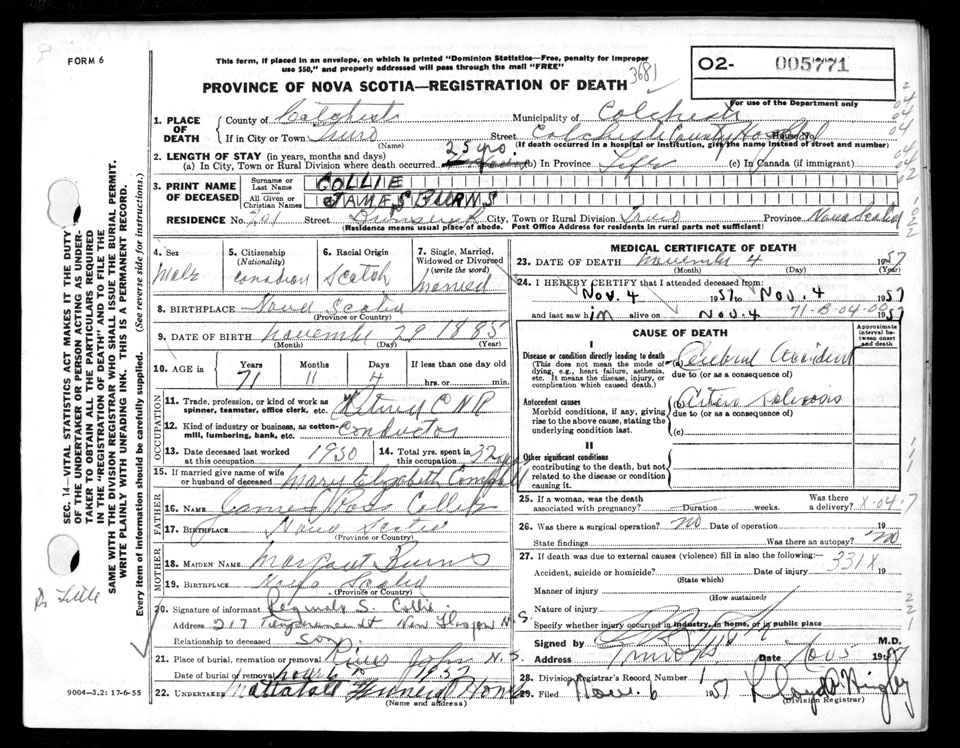 FORM 6
This form, if placed in an envelope, on which is printed "Dominion Statistics—Free, penalty for improper
use $50," and properly addressed will pass through the mail "FREE"
3681
02- 005771
For use of the Department only
PROVINCE OF NOVA SCOTIA—REGISTRATION OF DEATH
1. PLACE OF DEATH County of Colchester Municipality of Colchester
If in City or Town Truro Street Colchester County Hospital House No.
(Name) (If death occurred in a hospital or institution, give the name instead of street and number)
2. LENGTH OF STAY (in years, months and days)
(a) In City, Town or Rural Division where death occurred 25 yrs. (b) In Province Life (c) In Canada (if immigrant)
3. PRINT NAME OF DECEASED Surname or Last Name COLLIE
All Given or Christian Names JAMES BURNS
RESIDENCE No. 201 Street City, Town or Rural Division Truro Province Nova Scotia
(Residence means usual place of abode. Post Office Address for residents in rural parts not sufficient)
4. Sex Male
5. Citizenship (Nationality) Canadian
6. Racial Origin Scotch
7. Single, Married, Widowed or Divorced (write the word) Married
8. BIRTHPLACE Nova Scotia
(Province or Country)
9. DATE OF BIRTH November 29 1885
(Month) (Day) (Year)
10. AGE in Years 71 Months 11 Days 4 If less than one day old hrs. or min.
OCCUPATION
11. Trade, profession, or kind of work as spinner, teamster, office clerk, etc. Retired CNR
12. Kind of industry or business, as cotton-mill, lumbering, bank, etc. Conductor
13. Date deceased last worked at this occupation 1950
14. Total yrs. spent in this occupation 32 yrs
15. If married give name of wife or husband of deceased Mary Elizabeth Campbell
FATHER
16. NAME James Ross Collie
17. BIRTHPLACE Nova Scotia
(Province or Country)
MOTHER
18. MAIDEN NAME Margaret Burns
19. BIRTHPLACE Nova Scotia
(Province or Country)
20. Signature of informant Reginald S. Collie
Address 217 Temperance St New Glasgow N.S.
Relationship to deceased Son.
21. Place of burial, cremation or removal River John N.S.
Date of burial or removal Nov 6 1957
22. UNDERTAKER Mattatall Funeral Home
(Name and address)
MEDICAL CERTIFICATE OF DEATH
23. DATE OF DEATH November 4 1957
(Month) (Day) (Year)
24. I HEREBY CERTIFY that I attended deceased from
Nov. 4 1957 to Nov. 4 1957
and last saw him alive on Nov. 4 1957
CAUSE OF DEATH
Approximate interval between onset and death
I
Disease or condition directly leading to death
(This does not mean the mode of dying, e.g., heart failure, asthenia, etc. It means the disease, injury, or complication which caused death.)
(a) Cerebral Accident
due to (or as a consequence of)
Antecedent causes
Morbid conditions, if any, giving rise to the above cause, stating the underlying condition last.
(b) Arterio sclerosis
due to (or as a consequence of)
(c)
II
Other significant conditions
contributing to the death, but not related to the disease or condition causing it.
25. If a woman, was the death associated with pregnancy? Duration weeks. Was there a delivery?
X-04-7
26. Was there a surgical operation? no Date of operation 19
State findings Was there an autopsy? no
27. If death was due to external causes (violence) fill in also the following:—
Accident, suicide or homicide? Date of injury 331X 19
(State which)
Manner of injury
(How sustained)
Nature of injury
Specify whether injury occurred in industry, in home, or in public place
Signed by M.D.
Address Truro N.S. Date Nov 5 1957
28. Division Registrar's Record Number
29. Filed Nov. 6 1957
(Division Registrar)
SEC. 14—VITAL STATISTICS ACT MAKES IT THE DUTY
OF THE UNDERTAKER OR PERSON ACTING AS UNDERTAKER
TO OBTAIN ALL THE PARTICULARS REQUIRED
IN THE "REGISTRATION OF DEATH" AND TO FILE THE
SAME WITH THE DIVISION REGISTRAR WHO SHALL ISSUE THE BURIAL PERMIT.
WRITE PLAINLY WITH UNFADING INK. THIS IS A PERMANENT RECORD.
Every item of information should be carefully supplied. (See reverse side for instructions.)
9004—3.2: 17-6-55